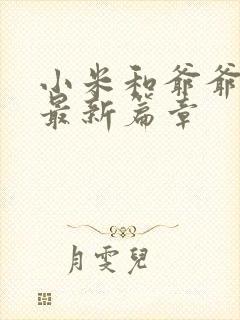 小米和爷爷
最新篇章
月雯兒